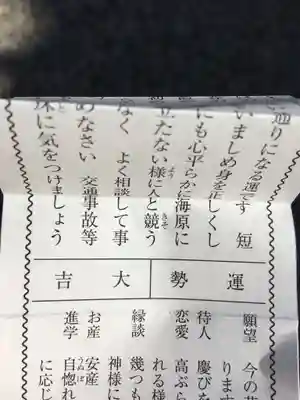 通りになる運です 短
いましめ身を正しくし
にも心平らかに海原に
立たない様に人と競う
なく よく相談して事
めなさい 交通事故等
に気をつけましょう
運勢
大吉
願望 今の
ります
待人 慶びを
恋愛 高ぶら
れる様
縁談 幾つも
神様に
お産 安産
進学 自惚れ
に応じ